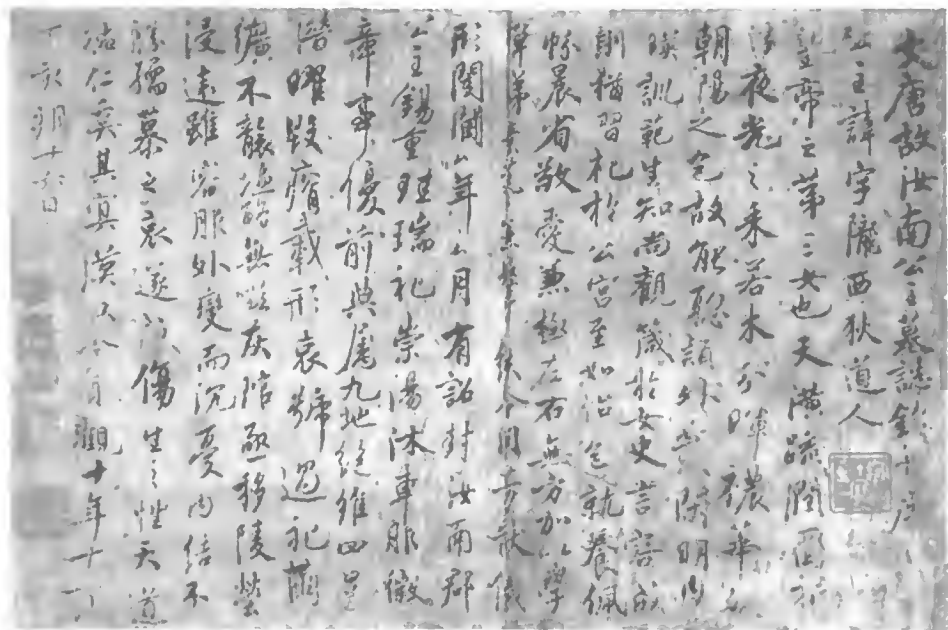 大唐故汝南公主墓誌銘并序
公主諱字隴西狄道人
皇帝之第三女也天潢疏潤圓折
浮夜光之采若木分暉穠華
朝陽之色故能聰穎外發閑明內
暎訓範生知尚觀箴於女史言容成
則猶習礼於公宮至如怡色就養佩
帉晨省敬愛兼極左右無方加以學
令問芳猷儀
形閨閫厶年厶月有詔封汝南郡
公主錫重珪瑞礼崇湯沐車服徽
章事優前典屬九地絕維四星
潛曜毀瘠載形哀號過礼繭
纊不襲塩酪無嗞灰琯亟移陵塋
浸遠雖容服外變而沉憂內結不
勝孺慕之哀遂成傷生之性天道
祐仁奚其冥漠以今貞觀十年十一
丁亥朔十六日